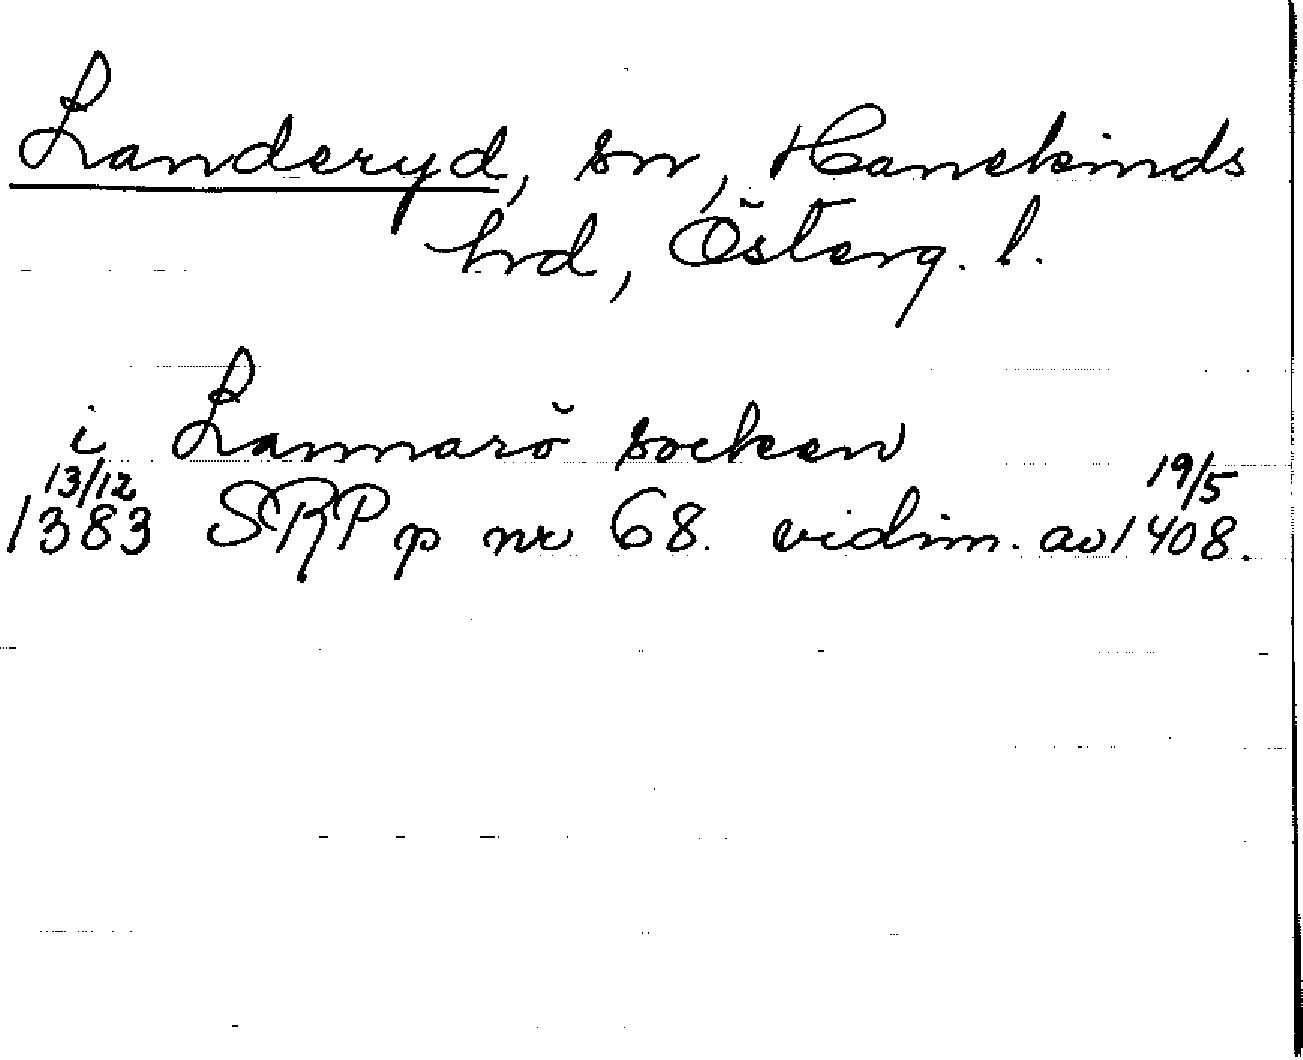 Landeryd, sn, Hanekinds
hrd, Österg. l.
i Lannarö socken
13/12 19/5
1383 SRP p nr 68. vidim. av 1408.